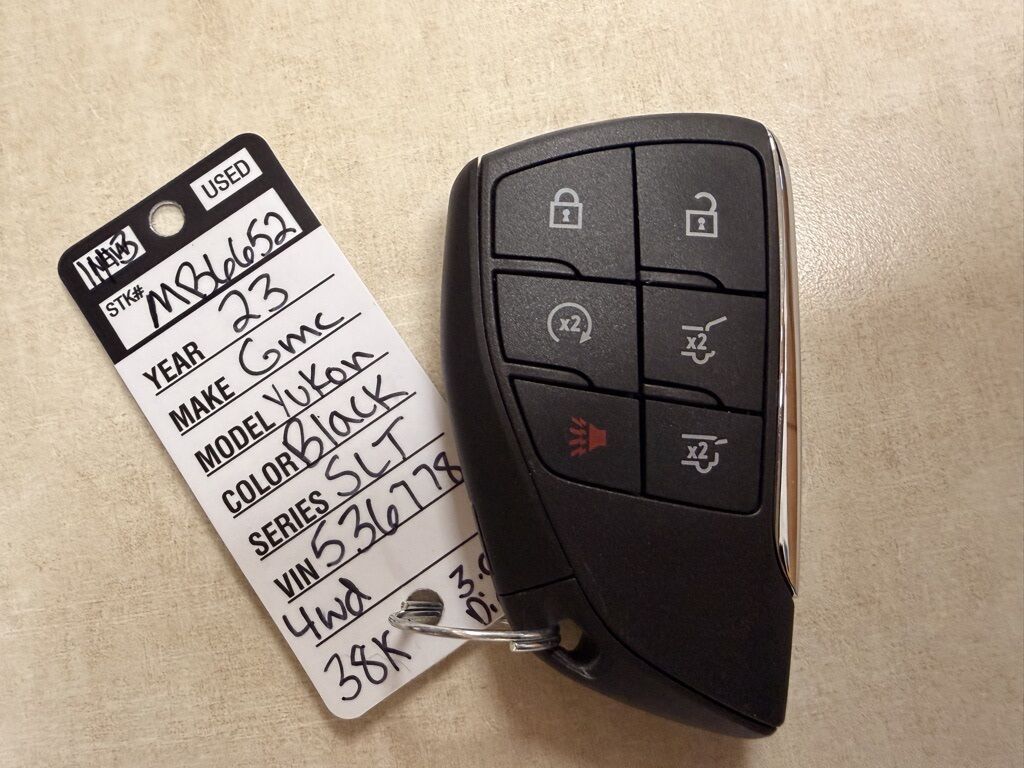 USED
NEW
STK# M86652
YEAR 23
MAKE Gmc
MODEL Yukon
COLOR Black
SERIES SLT
VIN 536778
4wd
38K
3.
Di
x2
x2
x2